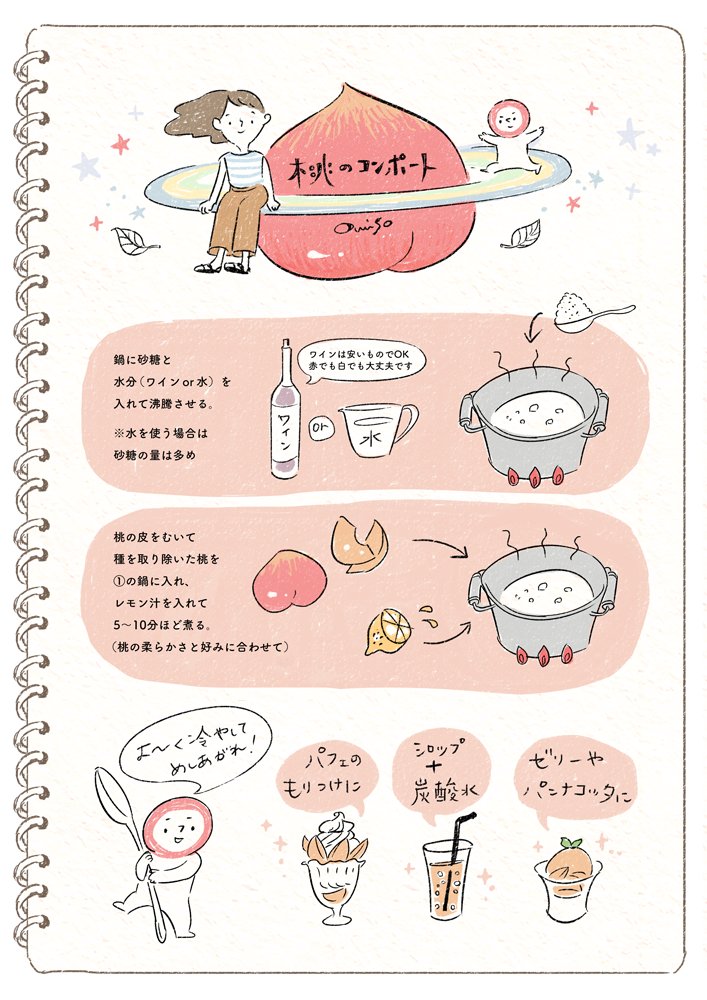 桃のコンポート
鍋に砂糖と
水分(ワインor水)を
入れて沸騰させる。
※水を使う場合は
砂糖の量は多め
ワインは安いものでOK
赤でも白でも大丈夫です
ワイン
or
水
桃の皮をむいて
種を取り除いた桃を
①の鍋に入れ、
レモン汁を入れて
5〜10分ほど煮る。
(桃の柔らかさと好みに合わせて)
よ〜く冷やして
めしあがれ!
パフェの
もりつけに
シロップ
+
炭酸水
ゼリーや
パンナコッタに